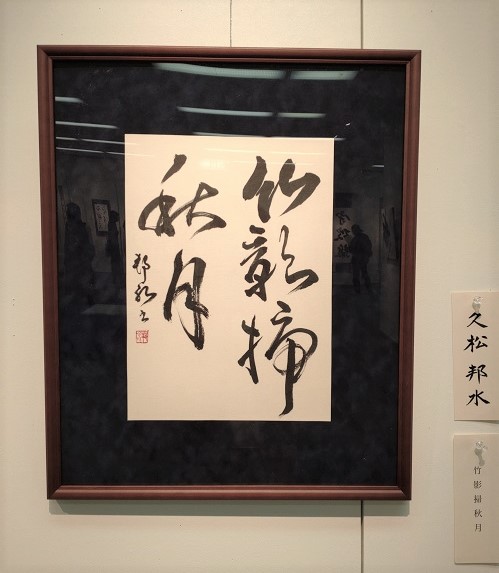 竹影掃
秋月
邦水書
久松邦水
竹影掃秋月